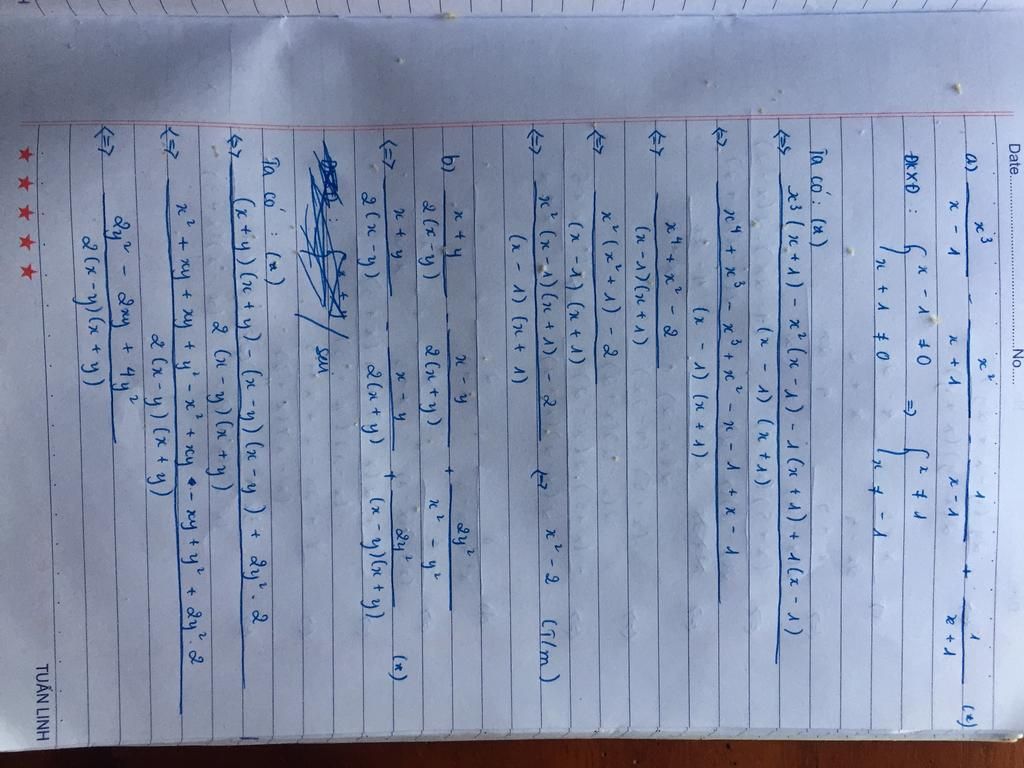 Date........................ No......
a) x³/(x - 1) - x²/(x + 1) - 1/(x - 1) + 1/(x + 1) (*)
ĐKXĐ : { x - 1 ≠ 0 => { x ≠ 1
{ x + 1 ≠ 0 { x ≠ - 1
Ta có : (*)
<=> (x³(x + 1) - x²(x - 1) - 1(x + 1) + 1(x - 1))/((x - 1)(x + 1))
<=> (x⁴ + x³ - x³ + x² - x - 1 + x - 1)/((x - 1)(x + 1))
<=> (x⁴ + x² - 2)/((x - 1)(x + 1))
<=> (x²(x² + 1) - 2)/((x - 1)(x + 1))
<=> (x²(x - 1)(x + 1) - 2)/((x - 1)(x + 1)) <=> x² - 2 (T/m)
b) (x + y)/(2(x - y)) - (x - y)/(2(x + y)) + 2y²/(x² - y²)
<=> (x + y)/(2(x - y)) - (x - y)/(2(x + y)) + 2y²/((x - y)(x + y)) (*)
Ta có : (*)
<=> ((x + y)(x + y) - (x - y)(x - y) + 2y² . 2)/(2(x - y)(x + y))
<=> (x² + xy + xy + y² - x² + xy - xy + y² + 2y² . 2)/(2(x - y)(x + y))
<=> (2y² - 2xy + 4y²)/(2(x - y)(x + y))
TUẤN LINH